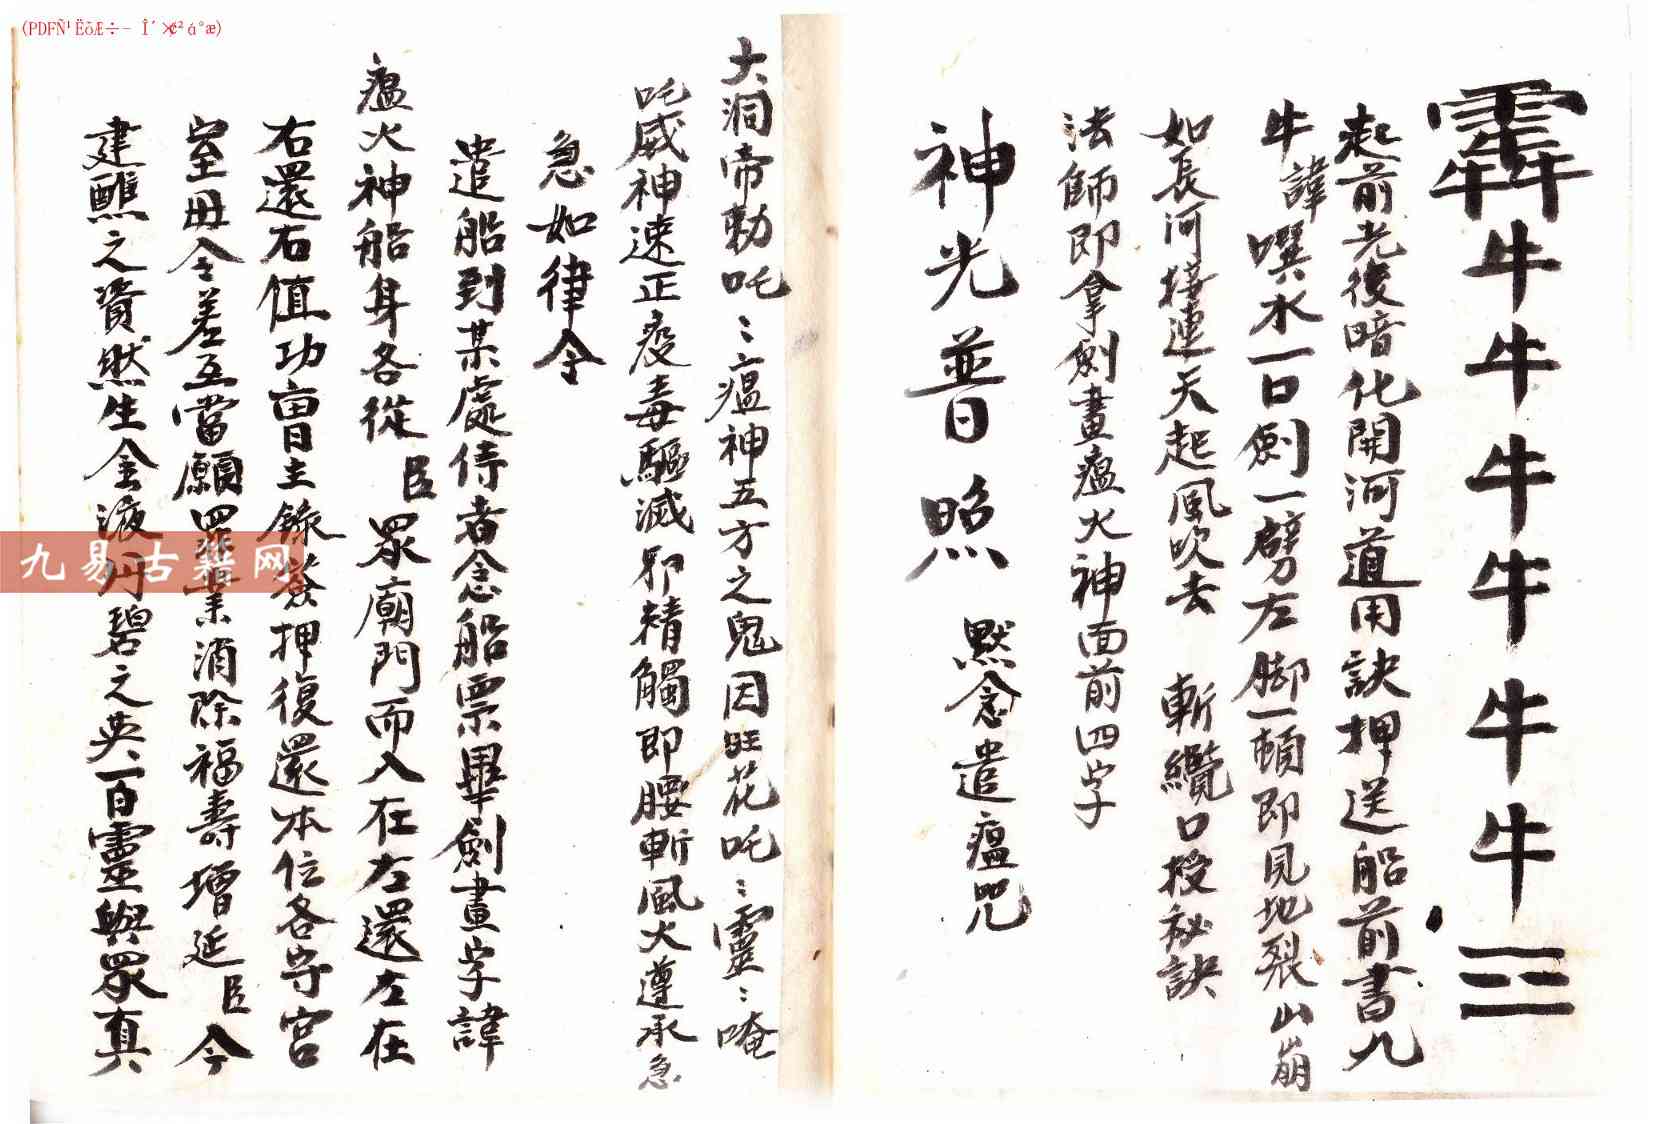 牛牛牛牛牛牛三
起前光後暗化開河道用訣押送船前書九
牛諱噀水一口劍一劈左脚一頓即見地裂山崩
如長河接連天起風吹去 斬纜口授秘訣
法師即拿劍畫瘟火神面前四字
神光普照 默念遣瘟咒
大洞帝勅吒〻瘟神五方之鬼因旺花吒〻靈〻唵
吒威神速正疫毒驅滅邪精觸即腰斬風火遵承急
急如律令
遣船到某處侍者念船票畢劍畫字諱
瘟火神船身各從臣眾廟門而入在左還左在
右還右值功曹主錄簽押復還本位各守宮
室毋令差互當願罪業消除福壽增延臣今
建醮之資然生金液丹碧之英一百靈與眾真
九易古籍网
(PDFÑ¹ËõÆ÷- Î´×¢²á°æ)